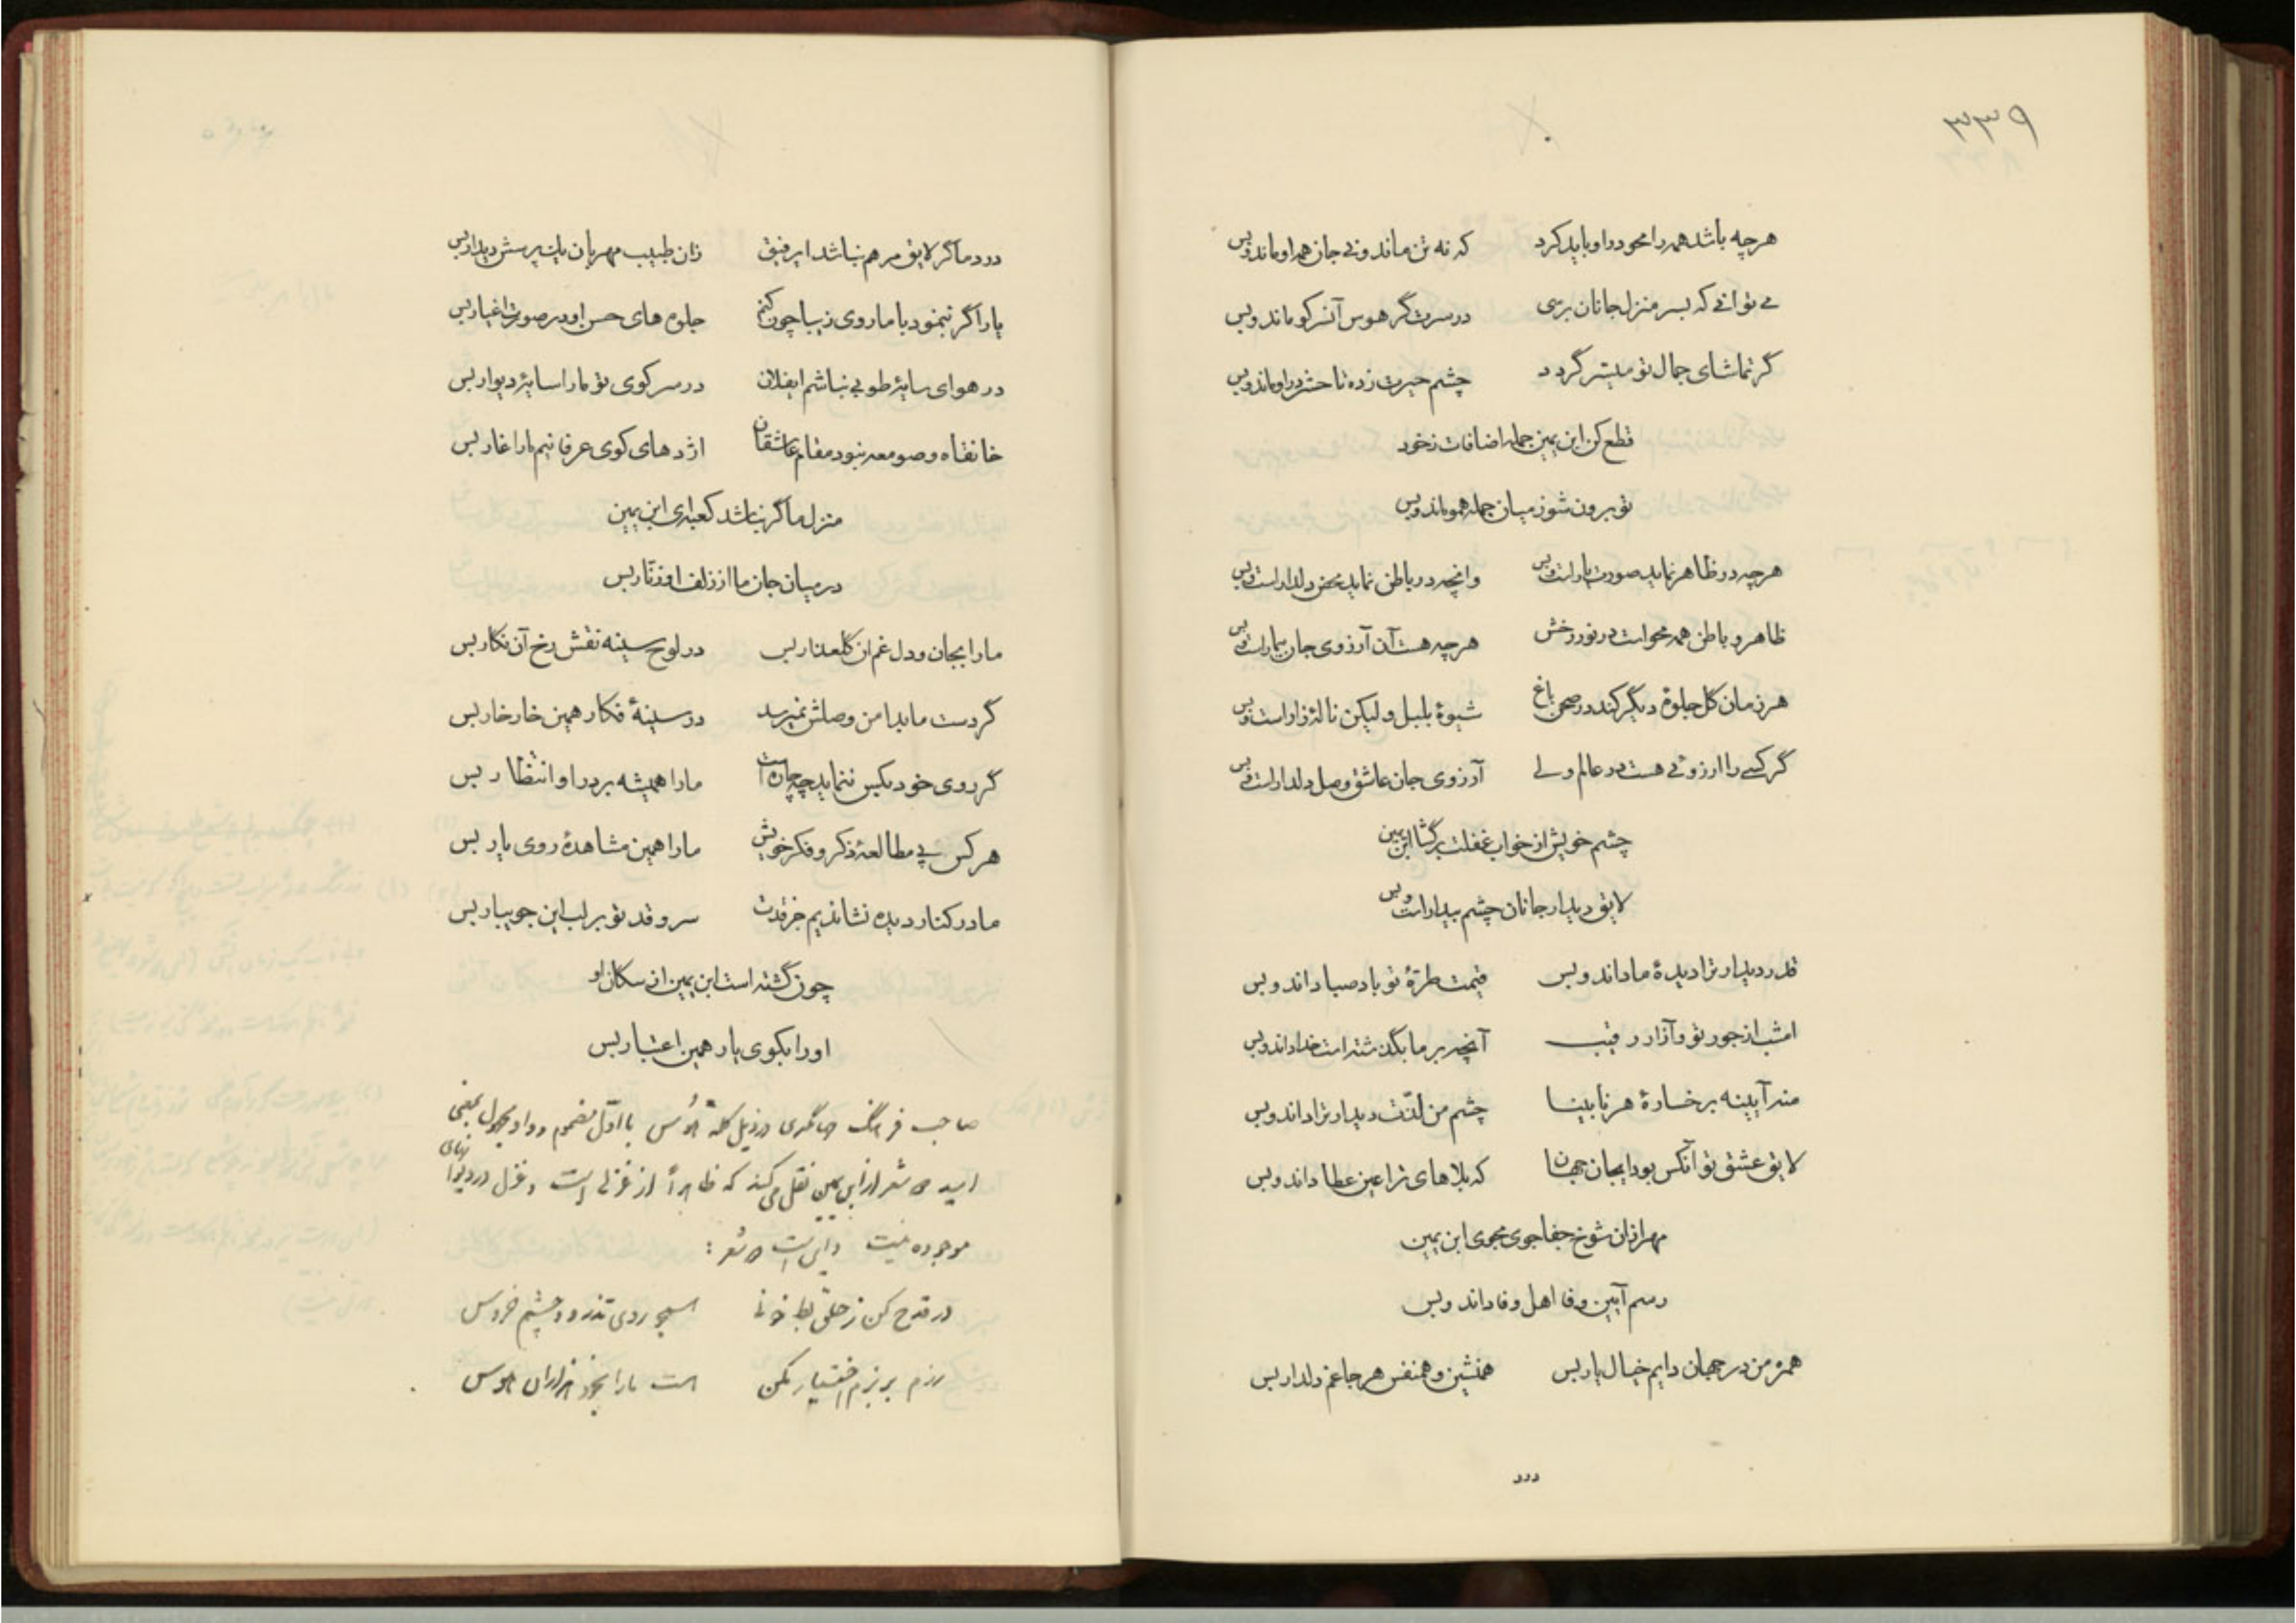 ۳۳۹
هرچه باشد همه را محو در او باید کرد که نه تن ماند و نی جان همه او ماند و بس
می توانی که بسر منزل جانان برسی در سرت گر هوس آن سر کو ماند و بس
گر تماشای جمال تو میسر گردد چشم حیرت زده تا حشر در او ماند و بس
قطع کن ابن یمین جمله اضافات ز خود
تو برون شو ز میان جمله همو ماند و بس
هرچه در ظاهر نماید صورت یار است و بس وانچه در باطن نماید محض دلدار است و بس
ظاهر و باطن همه محو است در نور رخش هرچه هست آن آرزوی جان بیمار است و بس
هر زمان گل جلوهٔ دیگر کند در صحن باغ شیوهٔ بلبل ولیکن نالهٔ زار است و بس
گر کسی را آرزوئی هست در عالم ولی آرزوی جان عاشق وصل دلدار است و بس
چشم خویش از خواب غفلت برگشا ابن یمین
لایق دیدار جانان چشم بیدار است و بس
قدر دیدار ترا دیدهٔ ما داند و بس قیمت طرهٔ تو باد صبا داند و بس
امشب از جور تو و آزار رقیب آنچه بر ما بگذشته است خدا داند و بس
منه آیینه بر خسارهٔ هر نابینا چشم من لذت دیدار ترا داند و بس
لایق عشق تو آنکس بود ایجان جهان که بلاهای ترا عین عطا داند و بس
مهر ازان شوخ جفاجوی مجوی ابن یمین
رسم آیین وفا اهل وفا داند و بس
همره من در جهان دایم خیال یار بس همنشین و همنفس هر جا غم دلدار بس
درد
درد ما گر لایق مرهم نباشد ای رفیق زان طبیب مهربان یک پرسش دیدار بس
یار اگر ننمود با ما روی زیبا چون کنم جلوه های حسن او در صورت اغیار بس
در هوای سایهٔ طوبی نباشم ایفلان در سر کوی تو ما را سایهٔ دیوار بس
خانقاه و صومعه نبود مقام عاشقان اژدهای کوی عرفانیم ما را غار بس
منزل ما گر نباشد کعبه ای ابن یمین
در میان جان ما از زلف او زنار بس
ما را بجان و دل غم آن گلعذار بس در لوح سینه نقش رخ آن نگار بس
گر دست ما بدامن وصلش نمیرسد در سینهٔ فکار همین خار خار بس
گر روی خود بکس ننماید چه چاره است ما را همیشه بر در او انتظار بس
هر کس پی مطالعهٔ ذکر و فکر خویش ما را همین مشاهدهٔ روی یار بس
ما در کنار دیده نشاندیم جز قدت سرو قد تو بر لب این جویبار بس
چون گشته است ابن یمین از سکان او
او را بکوی یار همین اعتبار بس
صاحب فرهنگ جهانگیری در ذیل کلمهٔ هُوس با اول مضموم و واو مجهول بمعنی
امید شعر از ابن یمین نقل می کند که ظاهراً از غزلی است و غزل در دیوانهای
موجوده نیست و این است شعر :
در قدح کن ز حلق بط خونی همچو روی تذرو و چشم خروس
رزم بر بزم اختیار مکن هست ما را بخود هزاران هوس